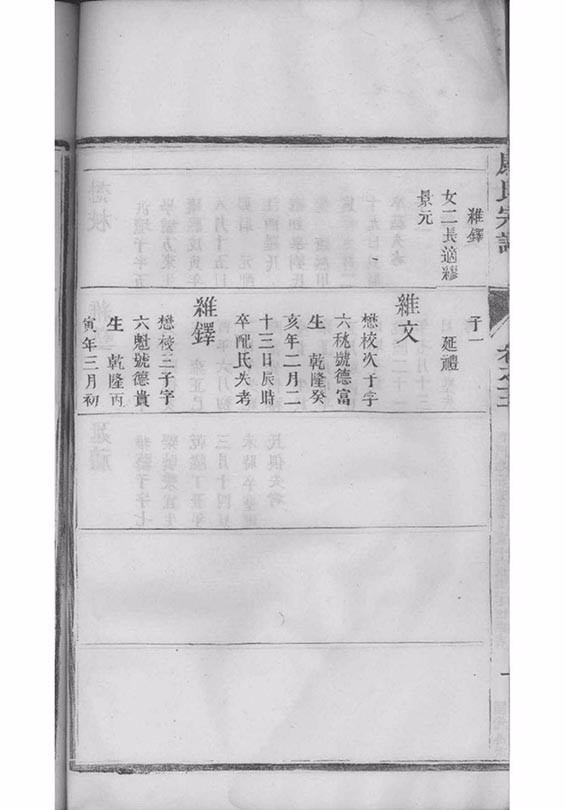 氏宗譜
卷之三
維鐸
女二長適繆
景元
子一 延禮
維文
懋校次子字
六秾號德富
生 乾隆癸
亥年二月二
十三日辰時
卒配氏失考
維鐸
懋校三子字
六魁號德貴
生 乾隆丙
寅年三月初